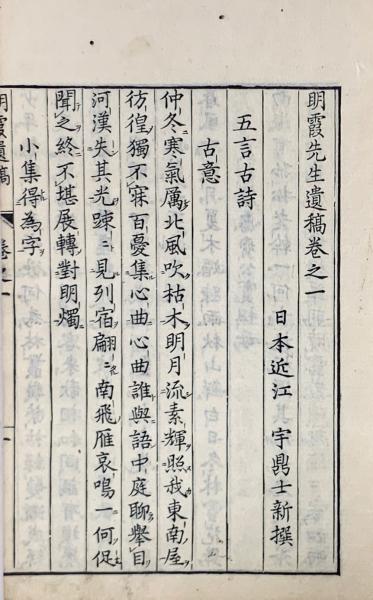 明霞先生遺稿卷之一
日本近江 宇鼎士新撰
五言古詩
古意
仲冬寒氣厲北風吹枯木明月流素輝照我東南屋
彷徨獨不寐百憂集心曲心曲誰與語中庭聊擧目
河漢失其光踈〻見列宿翩〻南飛雁哀鳴一何促
聞之終不堪展轉對明燭
小集得為字
明霞遺稿 卷之一